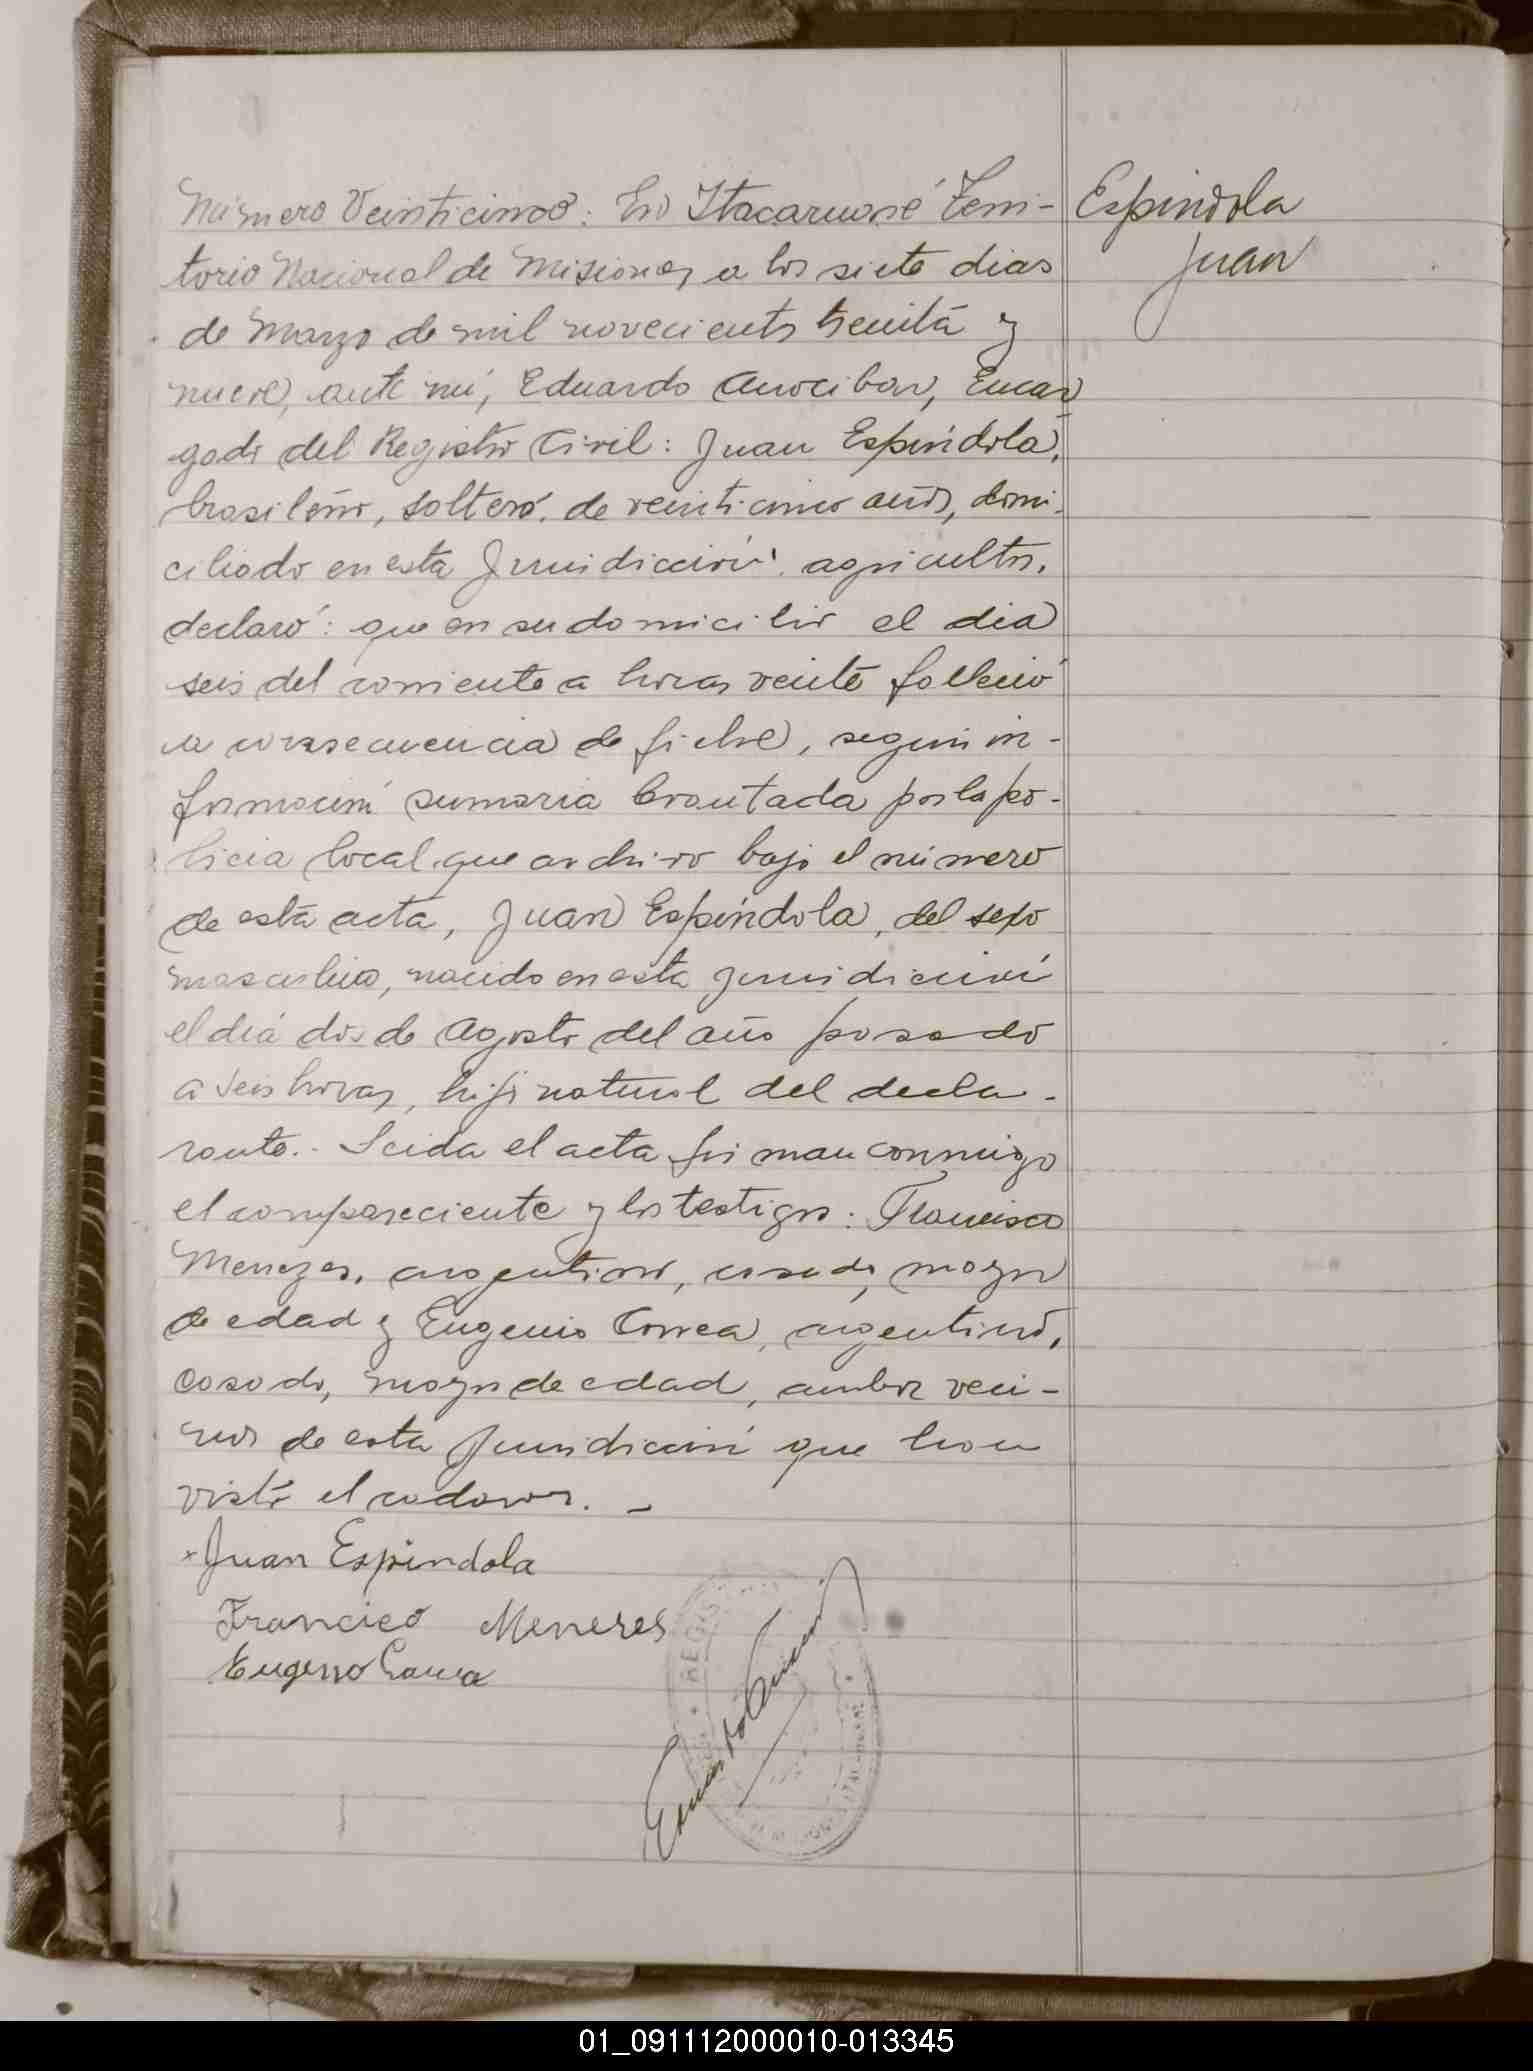 Número Veinticinco: En Itacaruaré Terri-
torio Nacional de Misiones, a los siete dias
de Marzo de mil novecientos treinta y
nueve, ante mí, Eduardo Arocibar, Encar
gado del Registro Civil: Juan Espíndola,
brasileño, soltero, de veinticinco años, domi-
ciliado en esta Jurisdicción, agricultor,
declaró: que en su domicilio el dia
seis del corriente a horas veinte falleció
a consecuencia de fiebre, según in-
formación sumaria levantada por la po-
licia local que archivo bajo el número
de esta acta, Juan Espíndola, del sexo
masculino, nacido en esta jurisdicción
el día dos de Agosto del año pasado
a seis horas, hijo natural del decla-
rante.- Leida el acta firman conmigo
el compareciente y los testigos: Francisco
Menezes, argentino, casado, mayor
de edad y Eugenio Correa, argentino,
casado, mayor de edad, ambos veci-
nos de esta Jurisdicción que han
visto el cadaver. -
Juan Espindola
Francico Meneses
Eugenio Correa
Espindola
Juan
REGIS
01_091112000010-013345